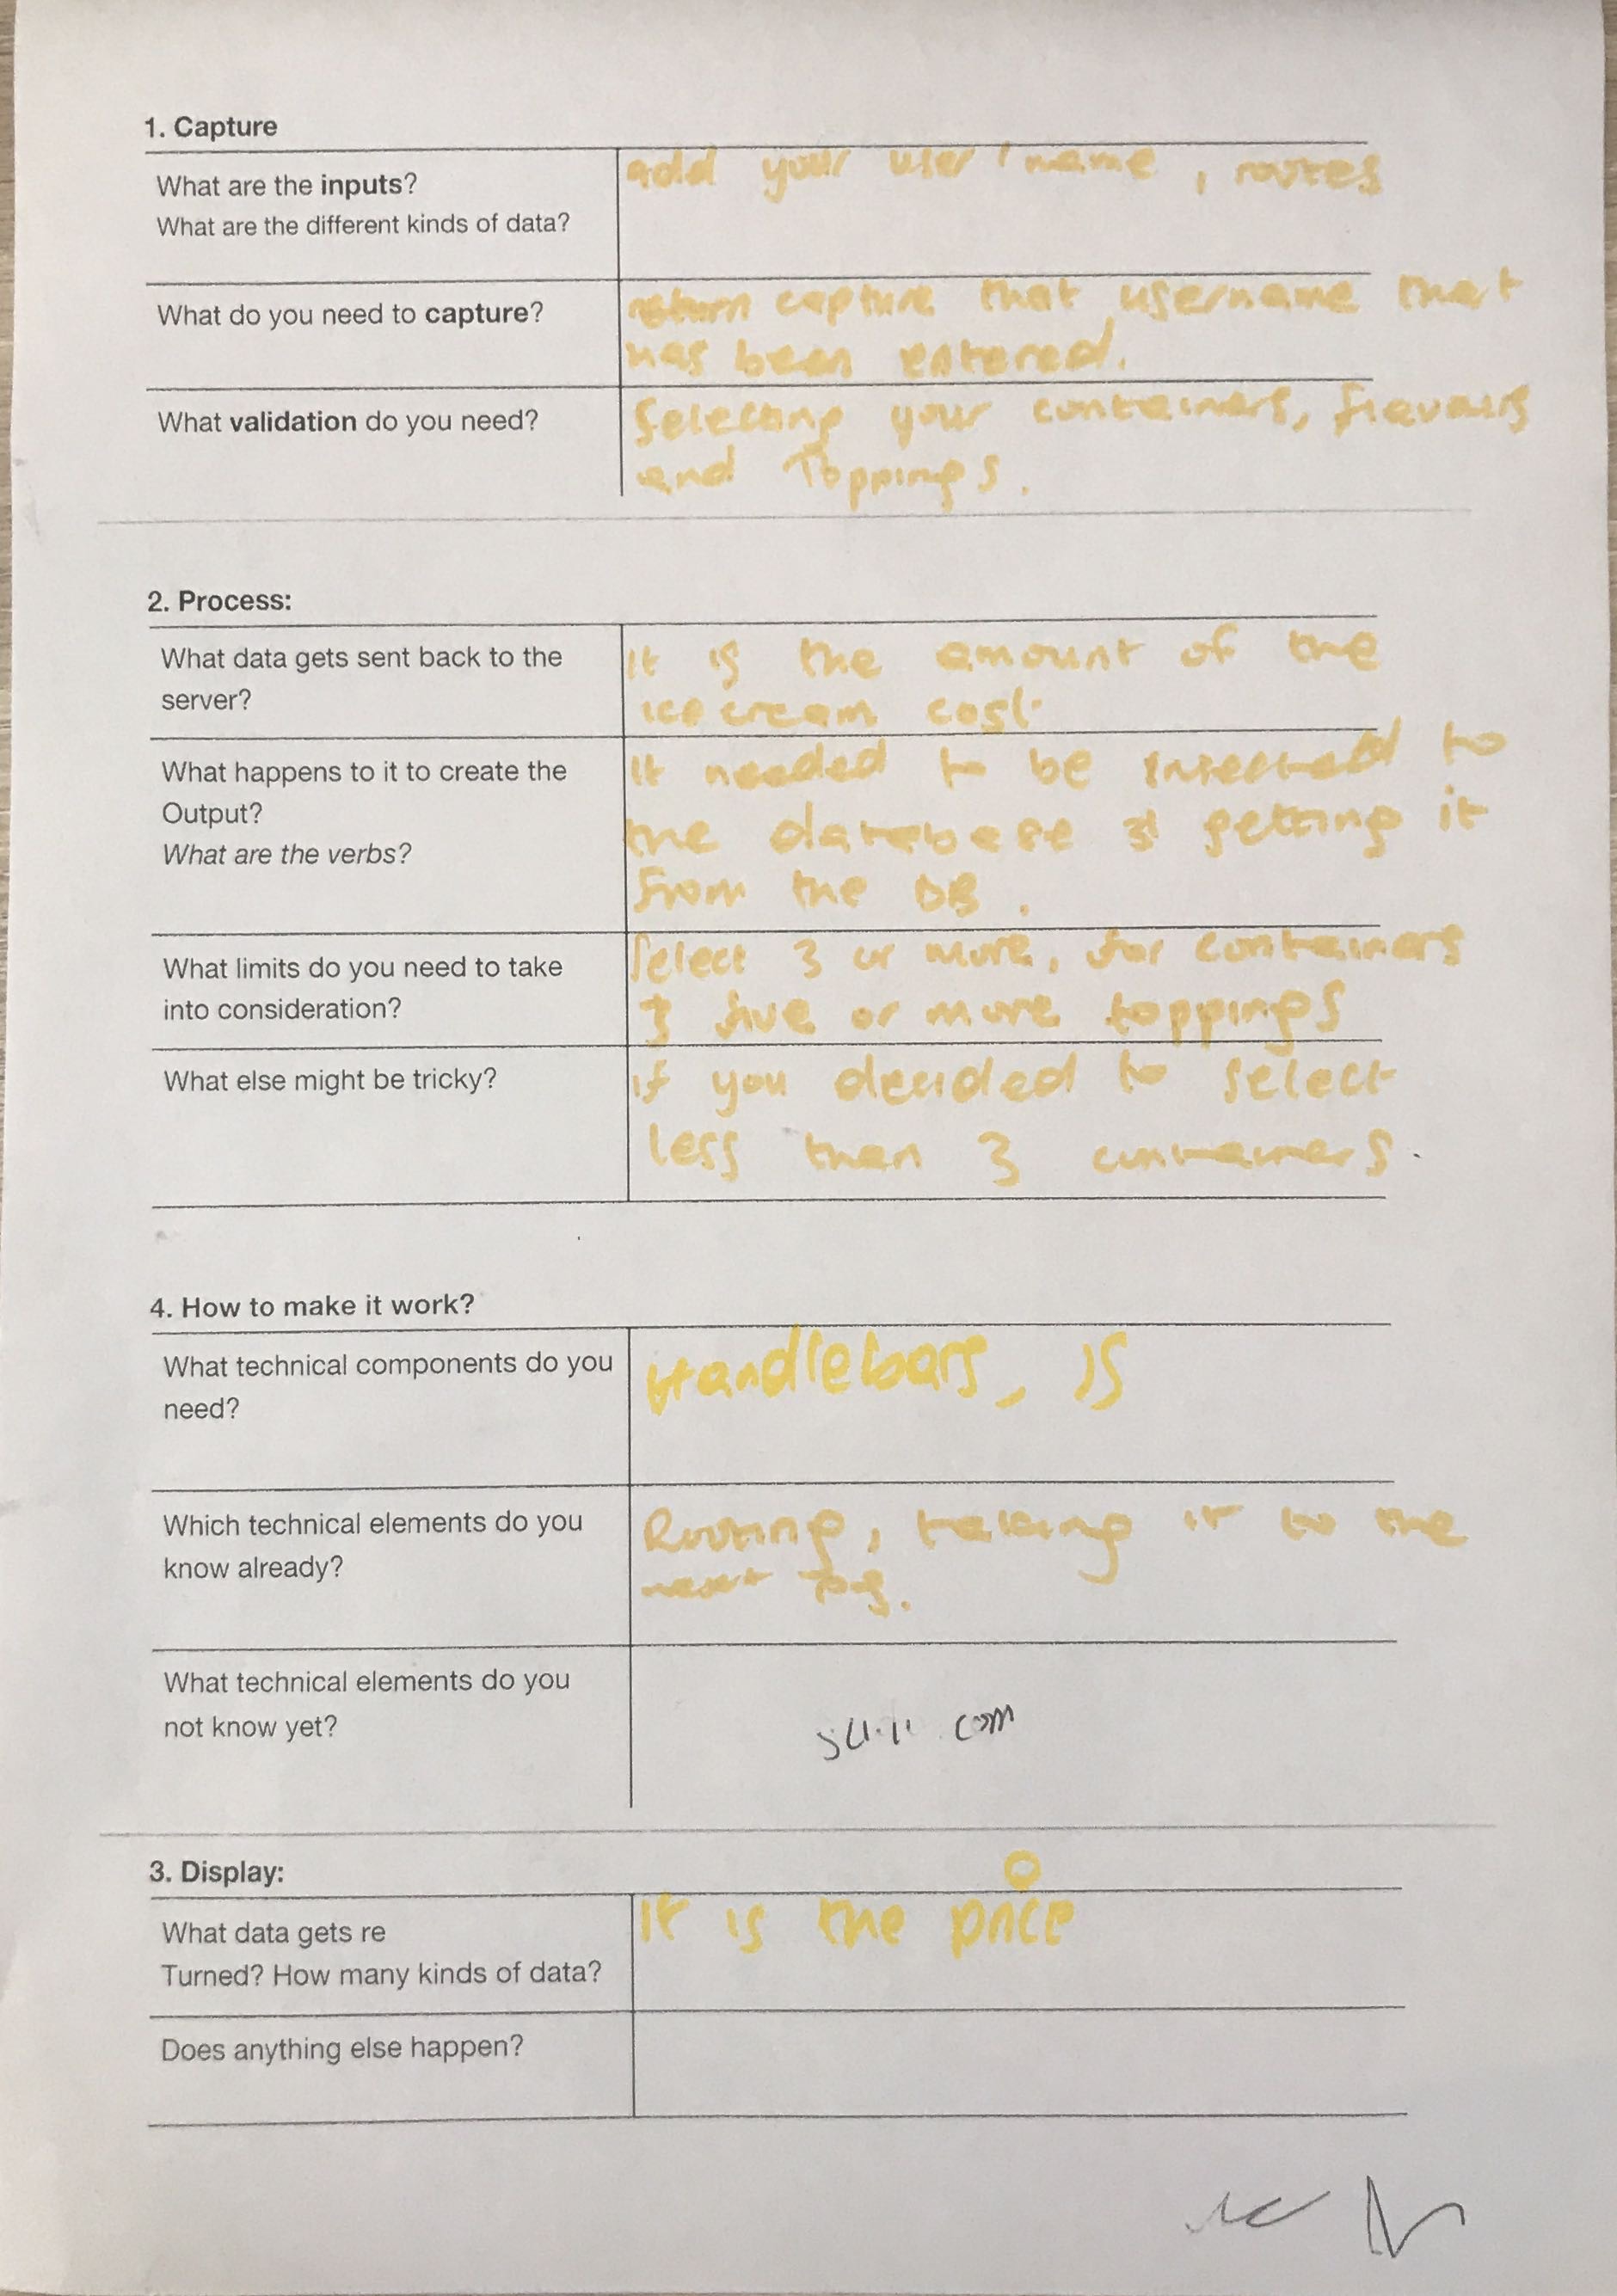 1. Capture
What are the inputs?
What are the different kinds of data?
add your user name, routes
What do you need to capture?
capture that username that
has been entered.
What validation do you need?
Selecting your containers, flavours
and Toppings.
2. Process:
What data gets sent back to the
server?
It is the amount of the
ice cream cost.
What happens to it to create the
Output?
What are the verbs?
It needed to be inserted to
the database & getting it
from the DB.
What limits do you need to take
into consideration?
Select 3 or more, for containers
& five or more toppings
What else might be tricky?
if you decided to select
less than 3 containers.
4. How to make it work?
What technical components do you
need?
Handlebars, JS
Which technical elements do you
know already?
Routing, taking it to the
next
What technical elements do you
not know yet?
com
3. Display:
What data gets re
Turned? How many kinds of data?
It is the price
Does anything else happen?